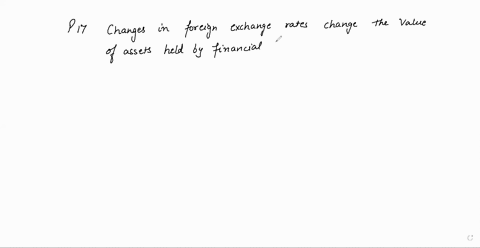 P17 Changes in foreign exchange rates change the value
of assets held by financial